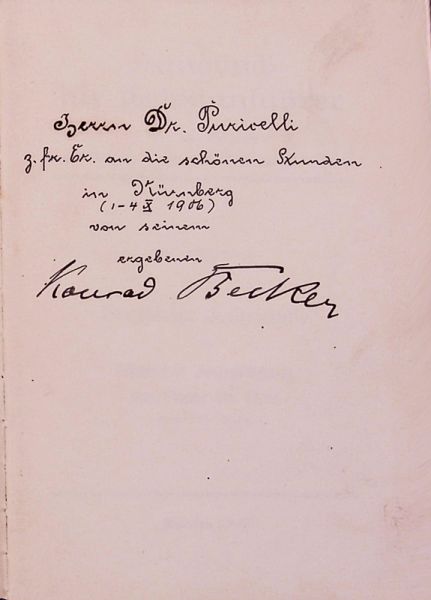 Herrn Dr. Puricelli
z. fr. Er. an die schönen Stunden
in Nürnberg
(1-4 X 1906)
von seinem
ergebenen
Konrad Becker